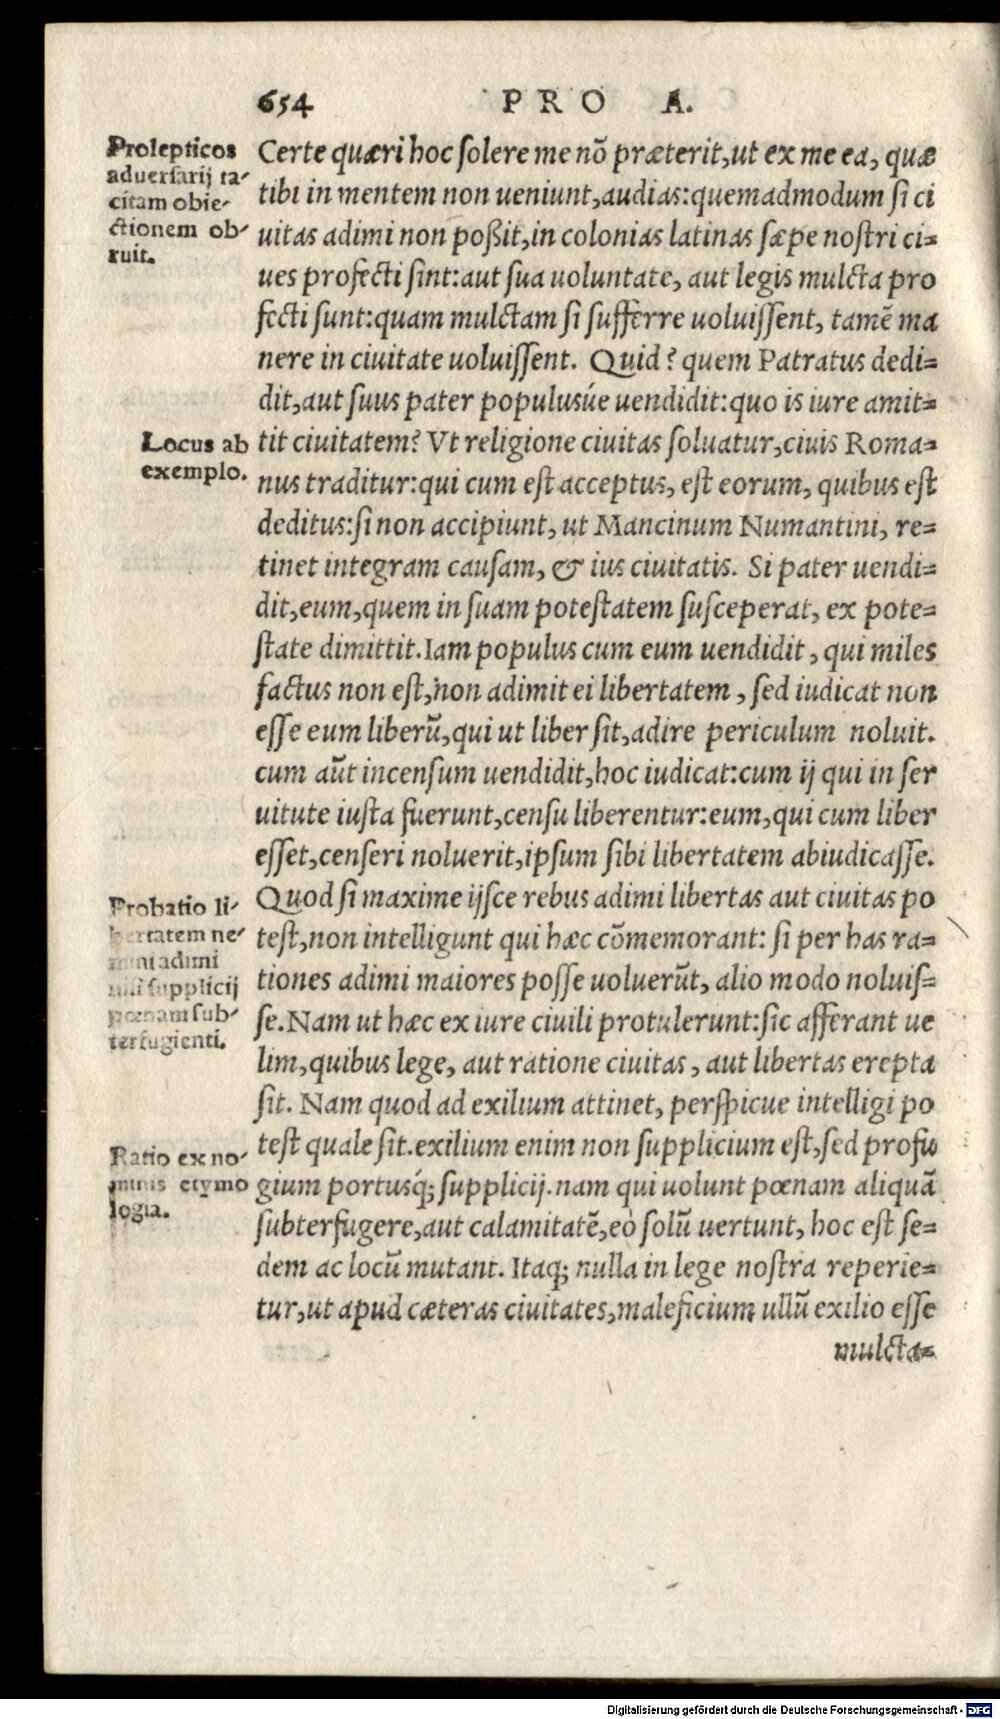 654 PRO A.
Prolepticos
aduersarij ta-
citam obie-
ctionem ob-
ruit.
Certe quæri hoc ſolere me nõ præterit, ut ex me ea, quæ
tibi in mentem non ueniunt, audias: quemadmodum ſi ci
uitas adimi non poßit, in colonias latinas ſæpe noſtri ci=
ues profecti ſint: aut ſua uoluntate, aut legis mulcta pro
fecti ſunt: quam mulctam ſi ſufferre uoluiſſent, tamẽ ma
nere in ciuitate uoluiſſent. Quid? quem Patratus dedi=
dit, aut ſuus pater populusúe uendidit: quo is iure amit=
Locus ab
exemplo.
tit ciuitatem? Vt religione ciuitas ſoluatur, ciuis Roma=
nus traditur: qui cum eſt acceptus, eſt eorum, quibus eſt
deditus: ſi non accipiunt, ut Mancinum Numantini, re=
tinet integram cauſam, & ius ciuitatis. Si pater uendi=
dit, eum, quem in ſuam poteſtatem ſuſceperat, ex pote=
ſtate dimittit. Iam populus cum eum uendidit, qui miles
factus non eſt, non adimit ei libertatem, ſed iudicat non
eſſe eum liberũ, qui ut liber ſit, adire periculum noluit.
cum aũt incenſum uendidit, hoc iudicat: cum ij qui in ſer
uitute iuſta fuerunt, cenſu liberentur: eum, qui cum liber
eſſet, cenſeri noluerit, ipſum ſibi libertatem abiudicaſſe.
Probatio li-
bertatem ne-
mini adimi
niſi ſupplicij
pœnam ſub-
terfugienti.
Quod ſi maxime ijſce rebus adimi libertas aut ciuitas po
teſt, non intelligunt qui hæc cõmemorant: ſi per has ra=
tiones adimi maiores poſſe uoluerũt, alio modo noluiſ=
ſe. Nam ut hæc ex iure ciuili protulerunt: ſic afferant ue
lim, quibus lege, aut ratione ciuitas, aut libertas erepta
ſit. Nam quod ad exilium attinet, perſpicue intelligi po
teſt quale ſit. exilium enim non ſupplicium eſt, ſed profu
Ratio ex no-
minis etymo
logia.
gium portusq́; ſupplicij. nam qui uolunt pœnam aliquã
ſubterfugere, aut calamitatẽ, eò ſolũ uertunt, hoc eſt ſe=
dem ac locũ mutant. Itaq; nulla in lege noſtra reperie=
tur, ut apud cæteras ciuitates, maleficium ullũ exilio eſſe
mulcta=
Digitalisierung gefördert durch die Deutsche Forschungsgemeinschaft - DFG